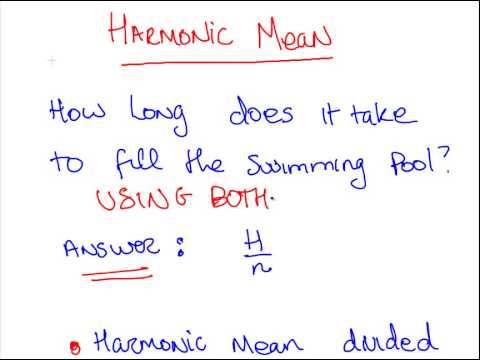 HARMONIC MEAN
How long does it take
to fill the swimming pool?
USING BOTH.
ANSWER : H/n
• HARMONIC MEAN divded